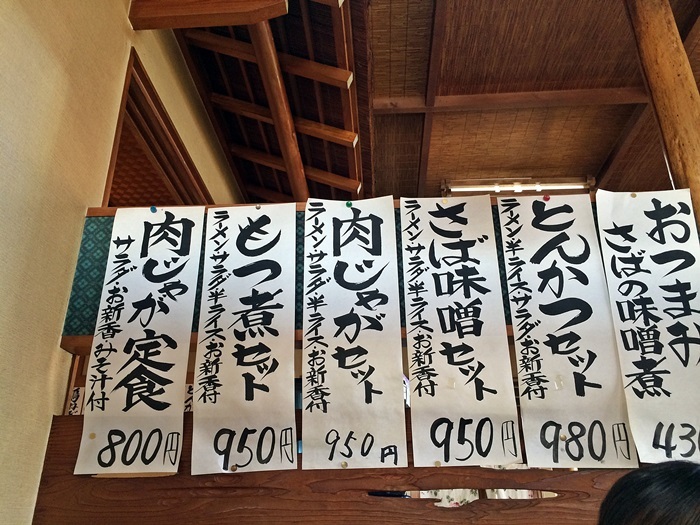 おつまみ
さばの味噌煮
430
とんかつセット
ラーメン・半ライス・サラダ・お新香付
980円
さば味噌セット
ラーメン・サラダ・半ライス・お新香付
950円
肉じゃがセット
ラーメン・サラダ・半ライス・お新香付
950円
もつ煮セット
ラーメン・サラダ・半ライス・お新香付
950円
肉じゃが定食
サラダ・お新香・みそ汁付
800円